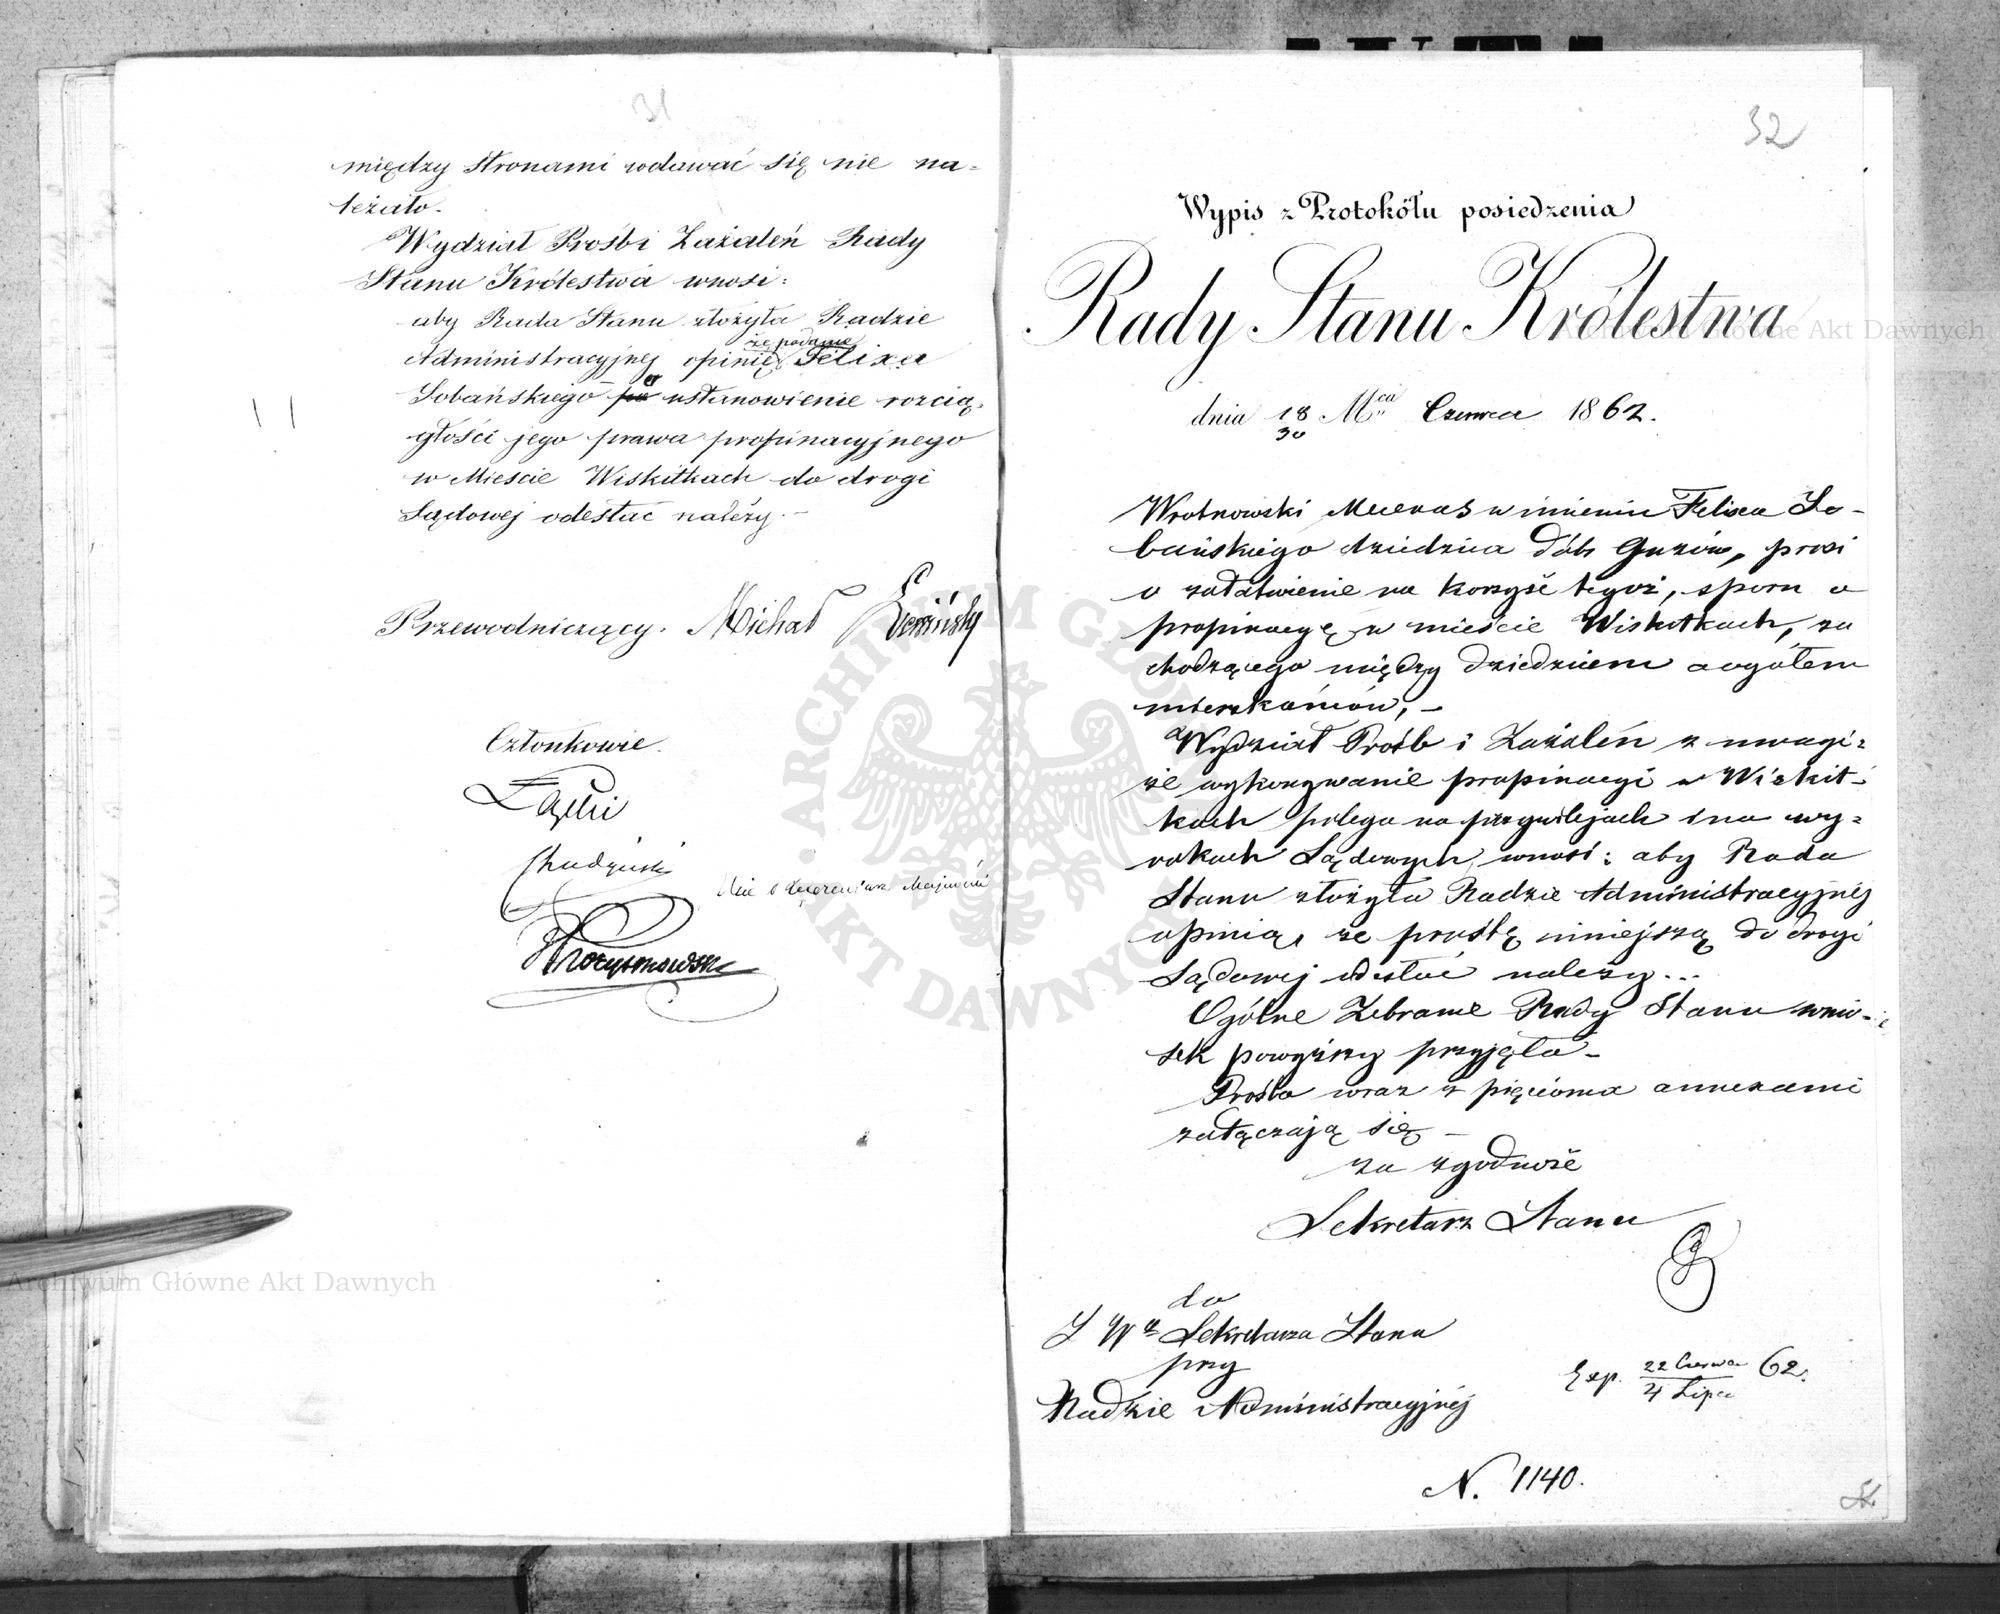 31
między stronami wdawać się nie na-
leżało.
Wydział Prośb i Zażaleń Rady
Stanu Królestwa wnosi:
aby Rada Stanu złożyła Radzie
że podanie
Administracyjnej opinię Felixa
Sobańskiego o ustanowienie rozcią-
głości jego prawa propinacyjnego
w Mieście Wiskitkach do drogi
Sądowej odesłać należy.-
Przewodniczący. Michał
Członkowie.
32
Wypis z Protokółu posiedzenia
Rady Stanu Królestwa
dnia 18/30 Mca Czerwca 1862.
Wrotnowski Mecenas w imieniu Felixa So-
bańskiego dziedzica dóbr Guzów, prosi
o załatwienie na korzyść tegoż, sporu o
propinacyę w mieście Wiskitkach, za
chodzącego między dziedzicem a ogółem
mieszkańców, -
Wydział Prośb i Zażaleń z uwagi:
że wykonywanie propinacyi w Wiskit-
kach polega na przywilejach i na wy-
rokach Sądowych, wnosi: aby Rada
Stanu złożyła Radzie Administracyjnéj
opinią, że prośbę niniejszą do drogi
Sądowej odesłać należy...
Ogólne Zebranie Rady Stanu wnio-
sek powyższy przyjęło -
Prośba wraz z pięcioma annexami
załączają się -
za zgodność
Sekretarz Stanu
do
J W° Sekretarza Stanu
przy
Radzie Administracyjnéj
Exp. 22 Czerwca/4 Lipca 62.
N. 1140.
ARCHIWUM GŁÓWNE AKT DAWNYCH
Archiwum Główne Akt Dawnych
Archiwum Główne Akt Dawnych